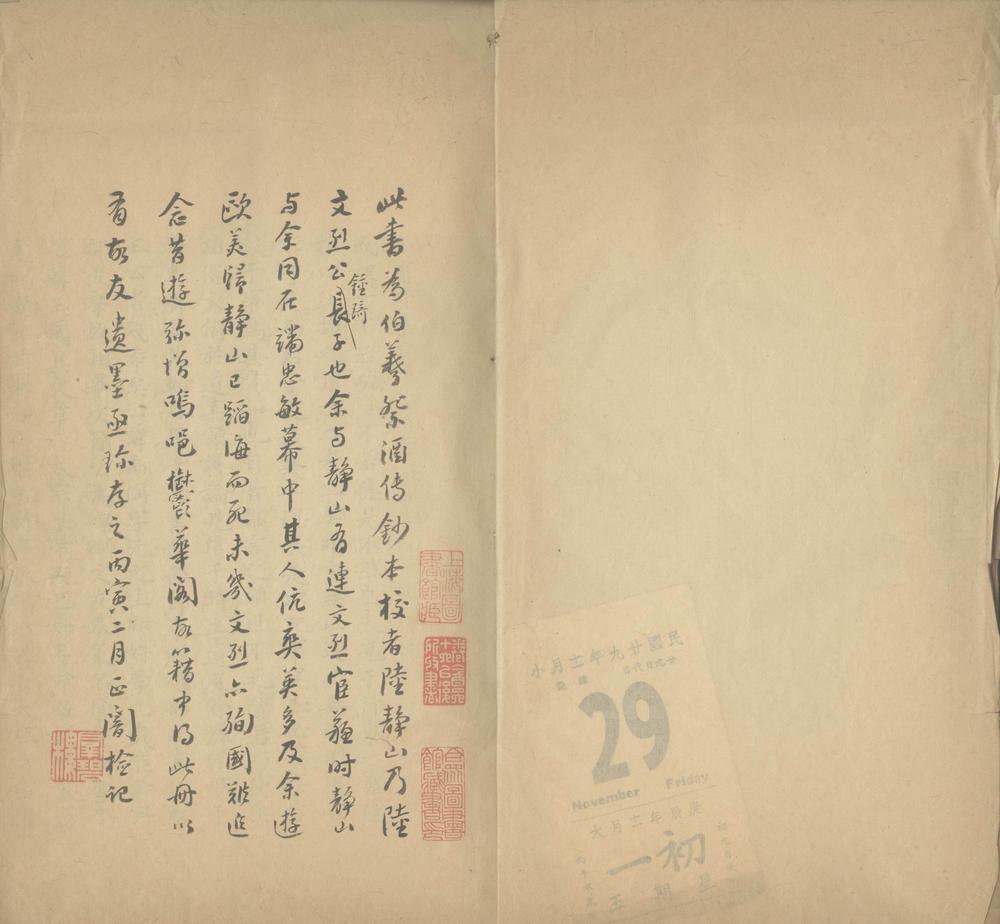 此書為伯羲祭酒傳鈔本校者陸靜山乃陸
文烈公長子也余与靜山有連文烈官蘇時靜山
鍾琦
与余同在端忠敏幕中其人伉爽英多及余遊
歐美歸靜山已蹈海而死未幾文烈亦殉國難追
念昔遊弥增嗚唈鬱華閣故籍中得此冊以
有故友遺墨亟珎存之丙寅二月正闇檢記
民國廿九年十一月小
29
November Friday
農曆年十一月大
初一
星期五